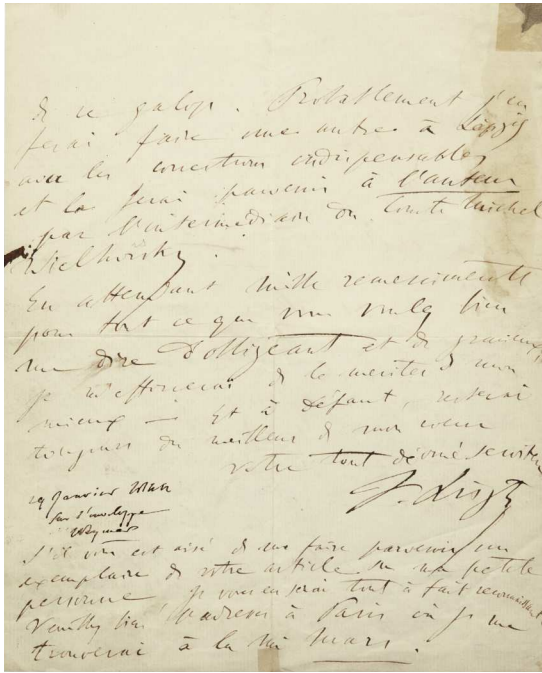 de ce galop. Probablement j'en
ferai faire une autre à Leipzig
avec les corrections indispensables
et la ferai parvenir à l'auteur
par l'intermédiaire du Comte Michel
Wielhorsky.
En attendant mille remerciments
pour tout ce que vous voulez bien
me dire d'obligeant et de gracieux,
je m'efforcerai de le mériter de mon
mieux — Et à défaut, resterai
toujours du meilleur de mon cœur
votre tout dévoué serviteur
F. Liszt
29 Janvier
sur l'enveloppe
S'il vous est aisé de me faire parvenir un
exemplaire de votre article sur ma petite
personne je vous en serai tout à fait reconnaissant
Veuillez bien l'adresser à Paris où je me
trouverai à la mi Mars.